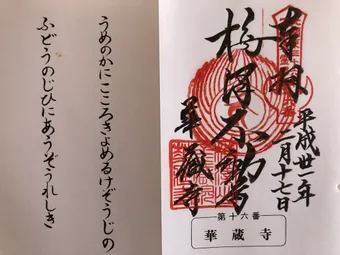 奉拝
平成丗一年
二月十七日
不動尊
華蔵寺
第十六番
華蔵寺
うめのかにこころきよめるけぞうじの
ふどうのじひにあうぞうれしき